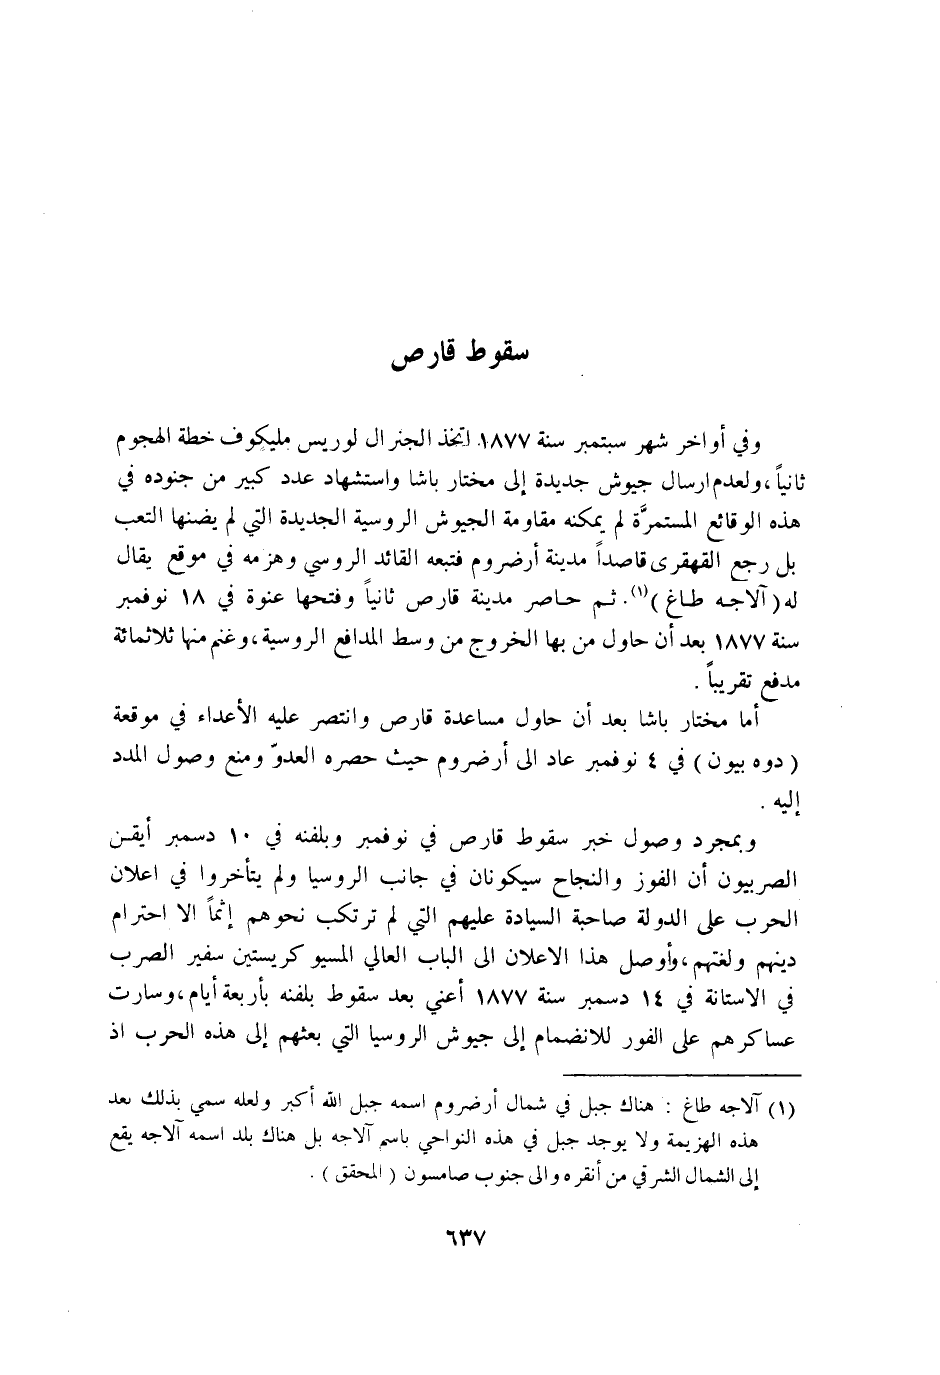 سقوط قارص
وفي أواخر شهر سبتمبر سنة ١٨٧٧ اتخذ الجنرال لوريس مليكوف خطة الهجوم
ثانياً، ولعدم ارسال جيوش جديدة إلى مختار باشا واستشهاد عدد كبير من جنوده في
هذه الوقائع المستمرَّة لم يمكنه مقاومة الجيوش الروسية الجديدة التي لم يضنها التعب
بل رجع القهقرى قاصداً مدينة أرضروم فتبعه القائد الروسي وهزمه في موقع يقال
له (آلاجه طاغ)(١). ثم حاصر مدينة قارص ثانياً وفتحها عنوة في ١٨ نوفمبر
سنة ١٨٧٧ بعد أن حاول من بها الخروج من وسط المدافع الروسية، وغنم منها ثلاثمائة
مدفع تقريباً .
أما مختار باشا بعد أن حاول مساعدة قارص وانتصر عليه الأعداء في موقعة
(دوه بيون) في ٤ نوفمبر عاد الى أرضروم حيث حصره العدوّ ومنع وصول المدد
إليه .
وبمجرد وصول خبر سقوط قارص في نوفمبر وبلفنه في ١٠ دسمبر أيقن
الصربيون أن الفوز والنجاح سيكونان في جانب الروسيا ولم يتأخروا في اعلان
الحرب على الدولة صاحبة السيادة عليهم التي لم ترتكب نحوهم إثماً الا احترام
دينهم ولغتهم، وأوصل هذا الاعلان الى الباب العالي المسيو كريستين سفير الصرب
في الاستانة في ١٤ دسمبر سنة ١٨٧٧ أعني بعد سقوط بلفنه بأربعة أيام، وسارت
عساكرهم على الفور للانضمام إلى جيوش الروسيا التي بعثهم إلى هذه الحرب اذ
(١) آلاجه طاغ : هناك جبل في شمال أرضروم اسمه جبل الله أكبر ولعله سمي بذلك بعد
هذه الهزيمة ولا يوجد جبل في هذه النواحي باسم آلاجه بل هناك بلد اسمه آلاجه يقع
إلى الشمال الشرقي من أنقره والى جنوب صامسون (المحقق) .
٦٣٧